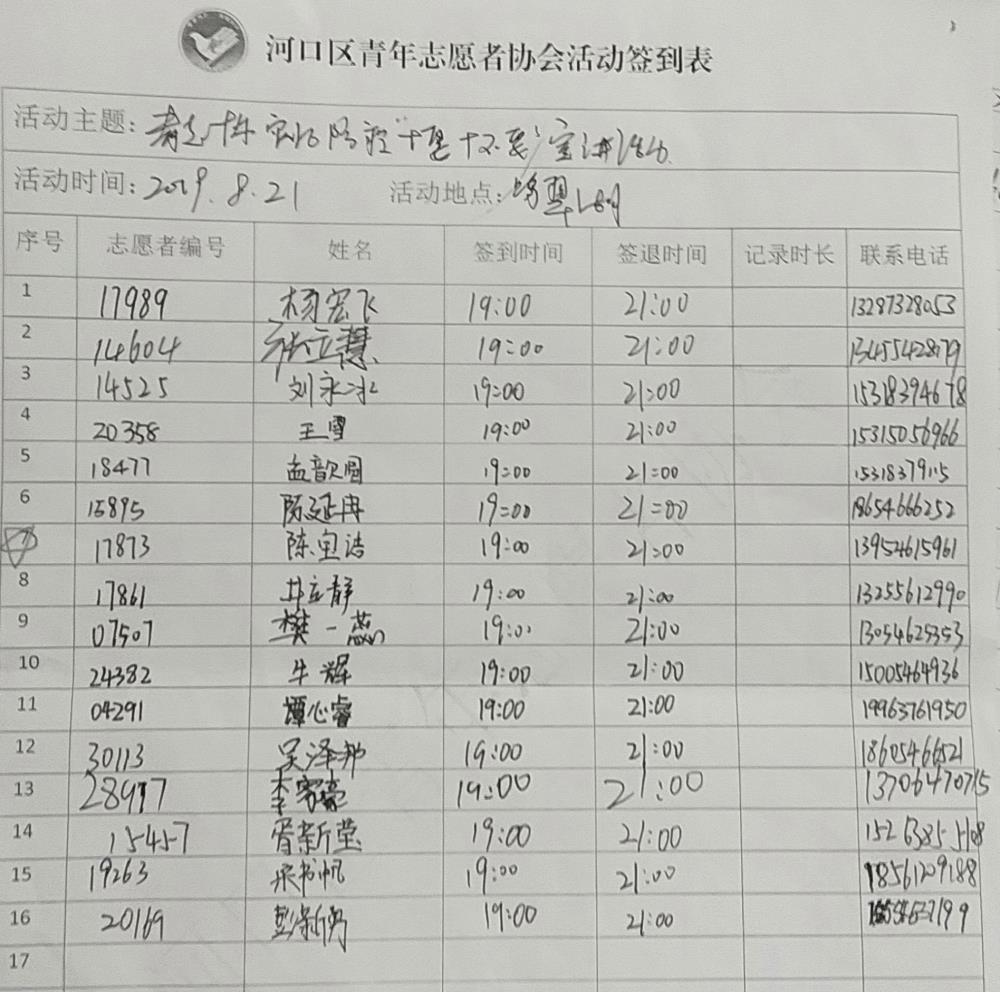 河口区青年志愿者协会活动签到表
活动主题: "十要十不要"宣讲活动
活动时间: 2019.8.21 活动地点:
序号 志愿者编号 姓名 签到时间 签退时间 记录时长 联系电话
1 17989 杨宏飞 19:00 21:00 13287328053
2 14604 张立慧 19:00 21:00 13455428179
3 14525 刘永冰 19:00 21:00 15318394678
4 20358 王雪 19:00 21:00 15315056966
5 18477 孟歆圆 19:00 21:00 15318379115
6 15895 陈延冉 19:00 21:00 18654666252
17873 陈宝洁 19:00 21:00 13954615961
8 17861 井立静 19:00 21:00 13255612990
9 07507 樊一蕊 19:00 21:00 13054625353
10 24382 牛辉 19:00 21:00 15005464936
11 04291 谭心睿 19:00 21:00 19963761950
12 30113 吴泽邦 19:00 21:00 18605466521
13 28917 李家豪 19:00 21:00 13706470715
14 15457 胥新莹 19:00 21:00 15263855108
15 19263 宋书帆 19:00 21:00 18561209188
16 20169 彭新勇 19:00 21:00
17